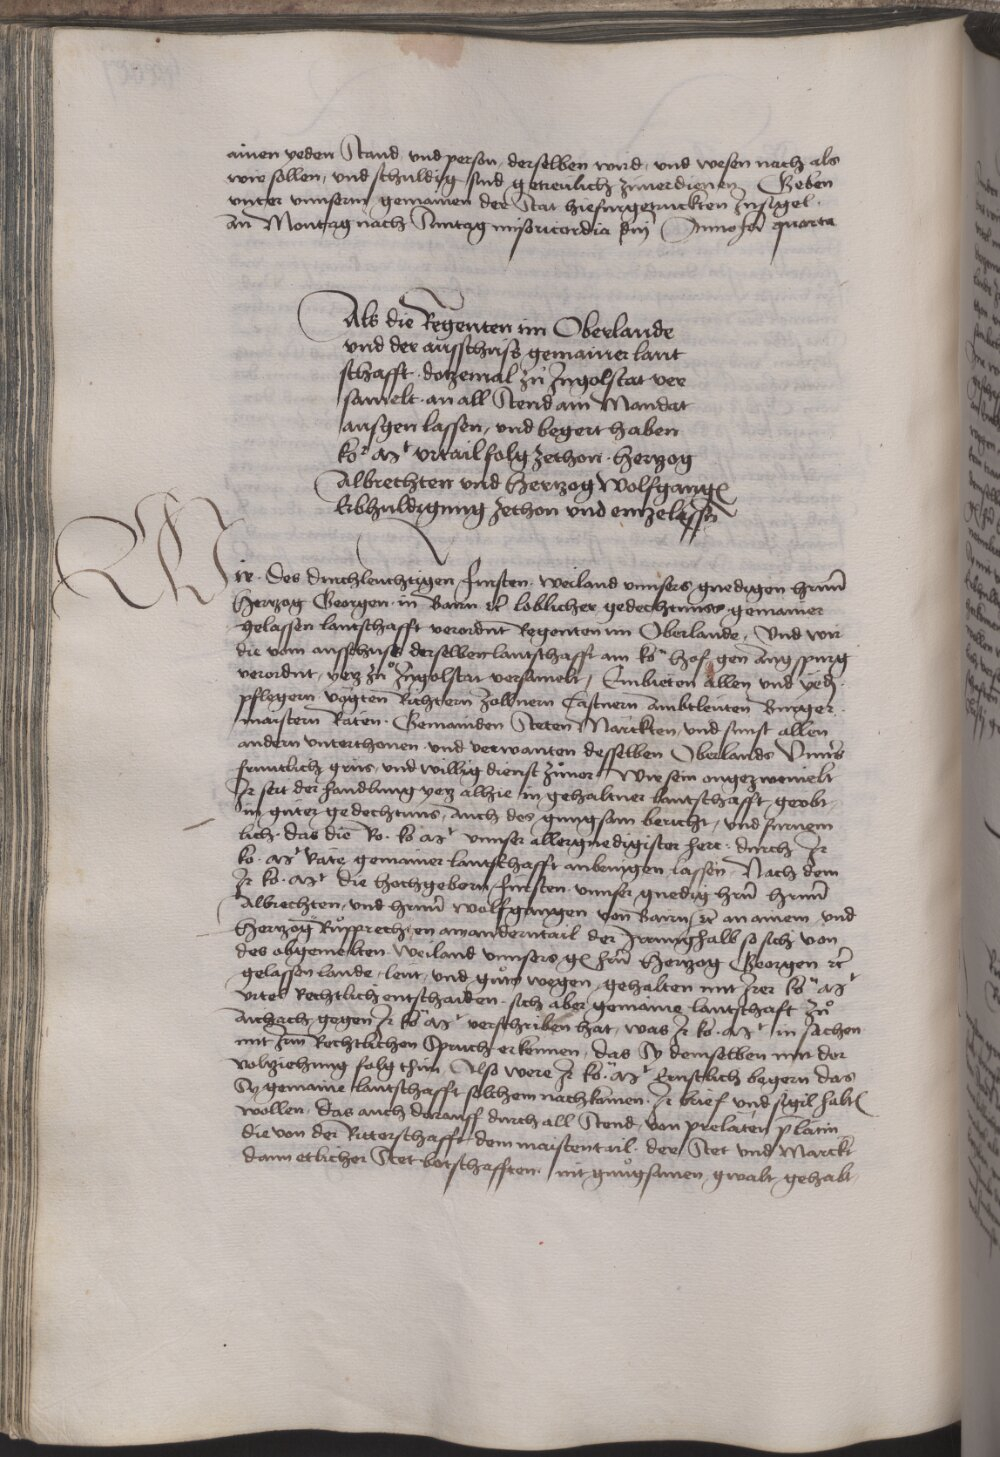 ainen yeden Stand, und person, derselben wird, und wesen nach als
wir sollen, und schuldig sind getreulich zuuerdienen Geben
unter unnserm gemainen der Stat hiefurgetruckten Innsigel.
An Montag nach Sontag misericordia dni Anno quarto
Als die Regenten im Oberlande
und der ausschuss gemainer lant
schafft. dotzemal zu Ingolstat ver
samelt. an all Stend ain Mandat
ausgen lassen, und begert haben
ko. Mt urtail folg zethon. Hertzog
Albrechten und Hertzog Wolfgangen
Erbhuldigung zethon und einzelassen
Wir. Des durchleuchtigen fursten. weiland unnsers gnedigen hrnn
Hertzog Georgen. in Bairn rc loblicher gedechtnuss. gemainer
gelassen lantschafft verordnt Regenten im Oberlande, Und wir
die vom ausschuss derselben lantschafft am ko. hof. gen Augspurg
verordnt, yetz zu Ingolstat versamelt, Embieten allen und yeden
pflegern vogten Richtern zollnern Castnern Ambtleuten Burger
maistern Räten. Gemainden Steten Märckten, und sunst allen
andern unterthonen und verwanten desselben Oberlands Unnser
fruntlich grus, und willig dienst zuuor. Wir sein ongezweiuelt
Ir seit der handlung yetz alhie in gehaltner lantschafft, geobt,
in guter gedechtnus, auch des gnugsam bericht, und furnem
lich. das die Ro. ko Mt unnser allergnedigister herr. durch Ir
ko. Mt Räte gemainer lantschafft anbringen lassen, Nach dem
Ir ko. Mt die hochgeborn fursten. unnser gnedig hrn hrnn
Albrechten, und hrnn Wolfgangen von Bairn rc an ainem, und
Hertzog Ruprechten am anderntail der Irrung halb so sich von
des obgemelten Weiland unnsers g. hrn Hertzog Georgen rc
gelassen lande, leut, und guts wegen, gehalten mit Irer ko. Mt
urtel Rechtlich entschaiden. sich aber gemaine lantschaft zu
Aichach gegen Ir ko Mt verschriben hat, was Ir ko. Mt in sachen
mit Irm Rechtlichen Spruch erkennen, das Sy demselben mit der
volziehung folg thun, Also were Ir ko. Mt Ernstlich begern das
Sy gemaine lantschafft solchem nachkämen. Ir brief und sigil halten
wollen, das auch darauff durch all Stend, von prelaten
die von der Ritterschafft dem maistentail. der Stet und Marckt
dann etlicher Stet botschafften. mit gnugsamen gwalt gehabt,